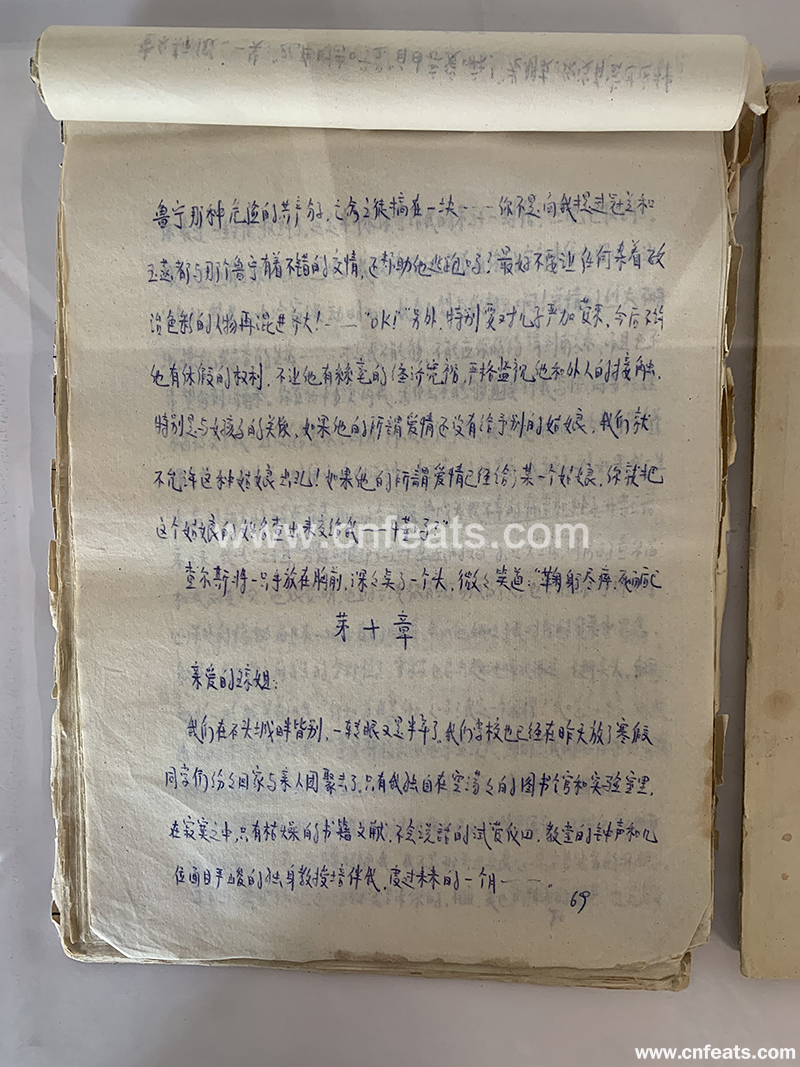 鲁宁那种危险的共产分子,亡命之徒搞在一块……你不是向我提过冠兰和
玉菡都与那个鲁宁有着不错的交情,还帮助他逃跑吗?最好不要让任何杂着政
治色彩的人物再混进齐大!……"OK!"另外,特别要对儿子严加管束,今后不许
他有休假的权利,不让他有丝毫的经济宽裕,严格监视他和外人的接触,
特别是与女孩子的关系,如果他的所謂爱情还没有给予别的姑娘,我们就
不允许这种姑娘出现!如果他的所謂爱情已经给了某一个姑娘,你就把
这个姑娘的姓名查出来交给我……
查尔斯将一只手放在胸前,深々点了一个头,微々笑道:"鞠躬尽瘁,死而后已
第十章
亲爱的琼姐:
我们在石头城畔皆别,一转眼又是半年了,我们学校也已经在昨天放了寒假
同学们纷々回家与亲人团聚去了,只有我独自在空荡々的图书馆和实验室里,
在寂寞之中,只有枯燥的书籍文献,不会说話的试管仪四,教堂的钟声和几
位面目严峻的独身教授培伴我,度过未来的一个月……。
69
www.cnfeats.com
www.cnfeats.com